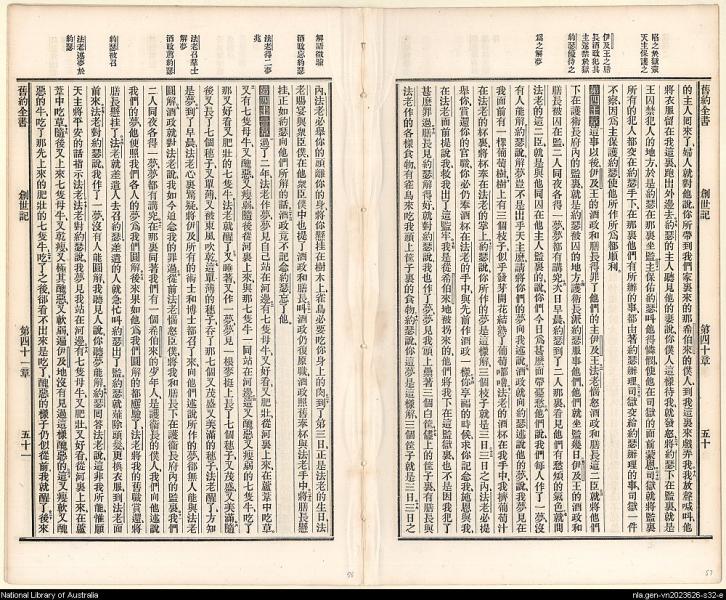 陷之於獄蒙
天主保護之
伊及王之膳
長酒政犯其
主逮禁於獄
約瑟優待之
為之解夢
舊約全書 創世記 第四十章 五十
的主人回來了婦人就對他說你所帶到我們家裏來的那希伯來的僕人到我這裏來戲弄我我放聲喊叫他
將衣服留在我這裏跑出外邊去約瑟的主人聽見他的妻說你僕人這樣待我就發怒將約瑟下在監裏就是
王囚禁犯人的地方於是約瑟在那裏坐監主保佑約瑟叫他得憐憫使他在司獄的面前蒙恩司獄就將監裏
所有的犯人都交在約瑟手下在那裏他們有所辦的事都由著約瑟辦理司獄交給約瑟辦理的事司獄一件
不察因為主保護約瑟使他所作所為都順利
第四十章這事以後伊及王的酒政和膳長得罪了他們的主伊及王法老惱怒酒政和膳長這二臣就將他們
下在護衛長府內的監裏就是約瑟被囚的地方護衛長派約瑟服事他們他們就坐監幾日伊及王的酒政和
膳長被囚在監二人同夜各得一夢夢都有講究次日早晨約瑟到了二人那裏看見他們有愁煩的氣色就問
法老的這二臣就是與他同囚在他主人監裏的說你們今日為甚麼面帶憂愁他們說我們每人作了一夢沒
有人能解約瑟說解夢豈不是出乎天主麼請將你們的夢告訴我酒政就向約瑟述他的夢說我夢見在
我面前有一棵葡萄樹樹上有三個枝子似乎發芽開花結熟了葡萄法老的酒杯在我手中我擠葡萄汁
在法老的杯裏將杯奉在法老的掌上約瑟說你所作的夢是這樣解三個枝子就是三日三日之內法老必提
舉你賞還你的官職你必仍奉酒杯在法老的手中與先前作酒政一樣你享福的時候求你記念我施恩與我
在法老面前提說我救我出了這監牢我是從希伯來地被拐來的他們將我下在這監裏也不是因我犯了
甚麼罪過膳長見約瑟解得好就對約瑟說我也作了夢夢見我頭上頂著三個白筐子筐子裏有膳長與
法老作的各樣食物有雀鳥來吃我頭上筐子裏的食物約瑟說你這夢是這樣解三個筐子就是三日三日之
解膳長夢
酒政忘約瑟
法老得二夢
法老召術士
解夢
酒政薦約瑟
約瑟被召
法老述夢於
約瑟
內法老必舉你的頭離你的身將你懸挂在樹木上雀鳥必要吃你身上的肉到了第三日正是法老的生日法
老賜宴與眾臣僕在他眾臣僕中也提了酒政和膳長叫酒政仍復原職酒政照舊奉杯與法老手中將膳長懸
挂正如約瑟向他們所解的話酒政竟不記念約瑟忘了他
第四十一章過了二年法老作夢夢見自己站在河邊有七隻母牛又好看又肥壯從河裏上來在蘆葦中吃草
又有七隻母牛又醜惡又瘦弱隨後從河裏上來與那七隻牛一同站在河邊這又醜惡又瘦弱的七隻牛吃了
那又好看又肥壯的七隻牛法老就醒了又睡著又作一夢夢見一根麥挺上長了七個穗子又茂盛又美滿隨
後又長了七個穗子又單薄又被東風吹乾這單薄的穗子吞了那七個又茂盛又美滿的穗子法老醒了方知
是夢到了早晨法老心裏驚疑將伊及所有的術士和博士都召了來向他們述說所作的夢都無人能與法老
圓解酒政就對法老說我如今追念我的罪過從前法老惱怒臣僕將我和膳長下在護衛長府內的監裏我們
二人同夜各得一夢夢都有講究在那裏同著我們有一個希伯來的少年人是護衛長的僕人我們向他述說
我們的夢他便照我們各人的夢為我們圓解後來果如他為我們圓解的都應驗了法老將我的舊職賞還將
膳長懸挂了法老就差遣人去召約瑟差遣的人就急忙叫約瑟出了監約瑟就薙除頭髮更換衣服到法老面
前來法老對約瑟說我作了一夢沒有人能圓解我聽見人說你聽夢能解約瑟回答法老說這非我所能惟願
天主將平安的話指示法老法老對約瑟說我夢見我站在河邊有七隻母牛又肥壯又好看從河裏上來在蘆
葦中吃草隨後又上來七隻母牛又瘦又極其醜惡又軟弱遍伊及地沒有見過這樣醜惡的這又瘦軟又醜
惡的牛吃了那先上來的肥壯的七隻牛吃了之後卻看不出來是吃了醜惡的樣子仍似從前我就醒了後來
舊約全書 創世記 第四十一章 五十一
56
57
National Library of Australia
nla.gen-vn2023626-s32-e